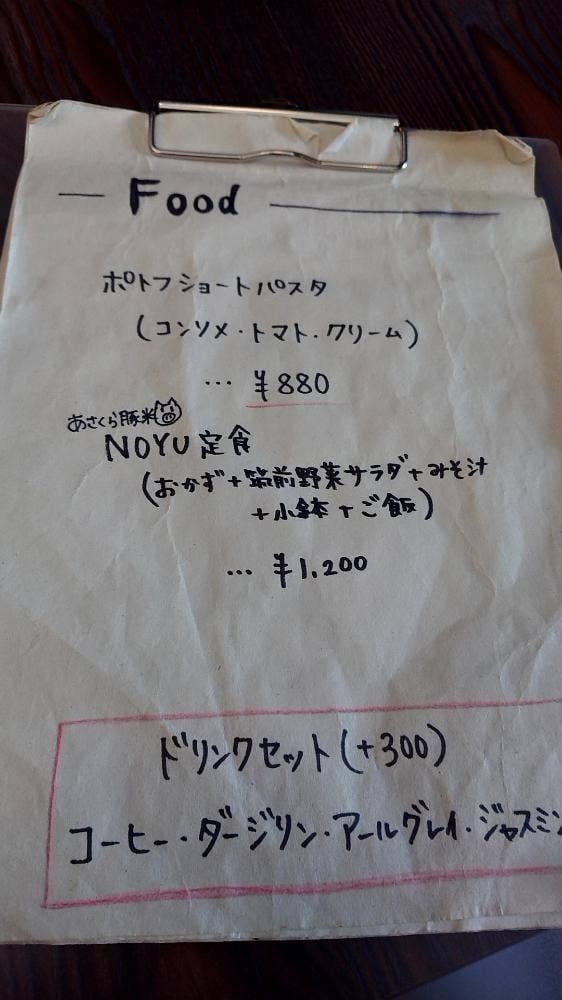 Food
ポトフショートパスタ
(コンソメ・トマト・クリーム)
… ¥880
あさくら豚米
NOYU定食
(おかず+筑前野菜サラダ+みそ汁
+小鉢+ご飯)
… ¥1,200
ドリンクセット(+300)
コーヒー・ダージリン・アールグレイ・ジャスミン